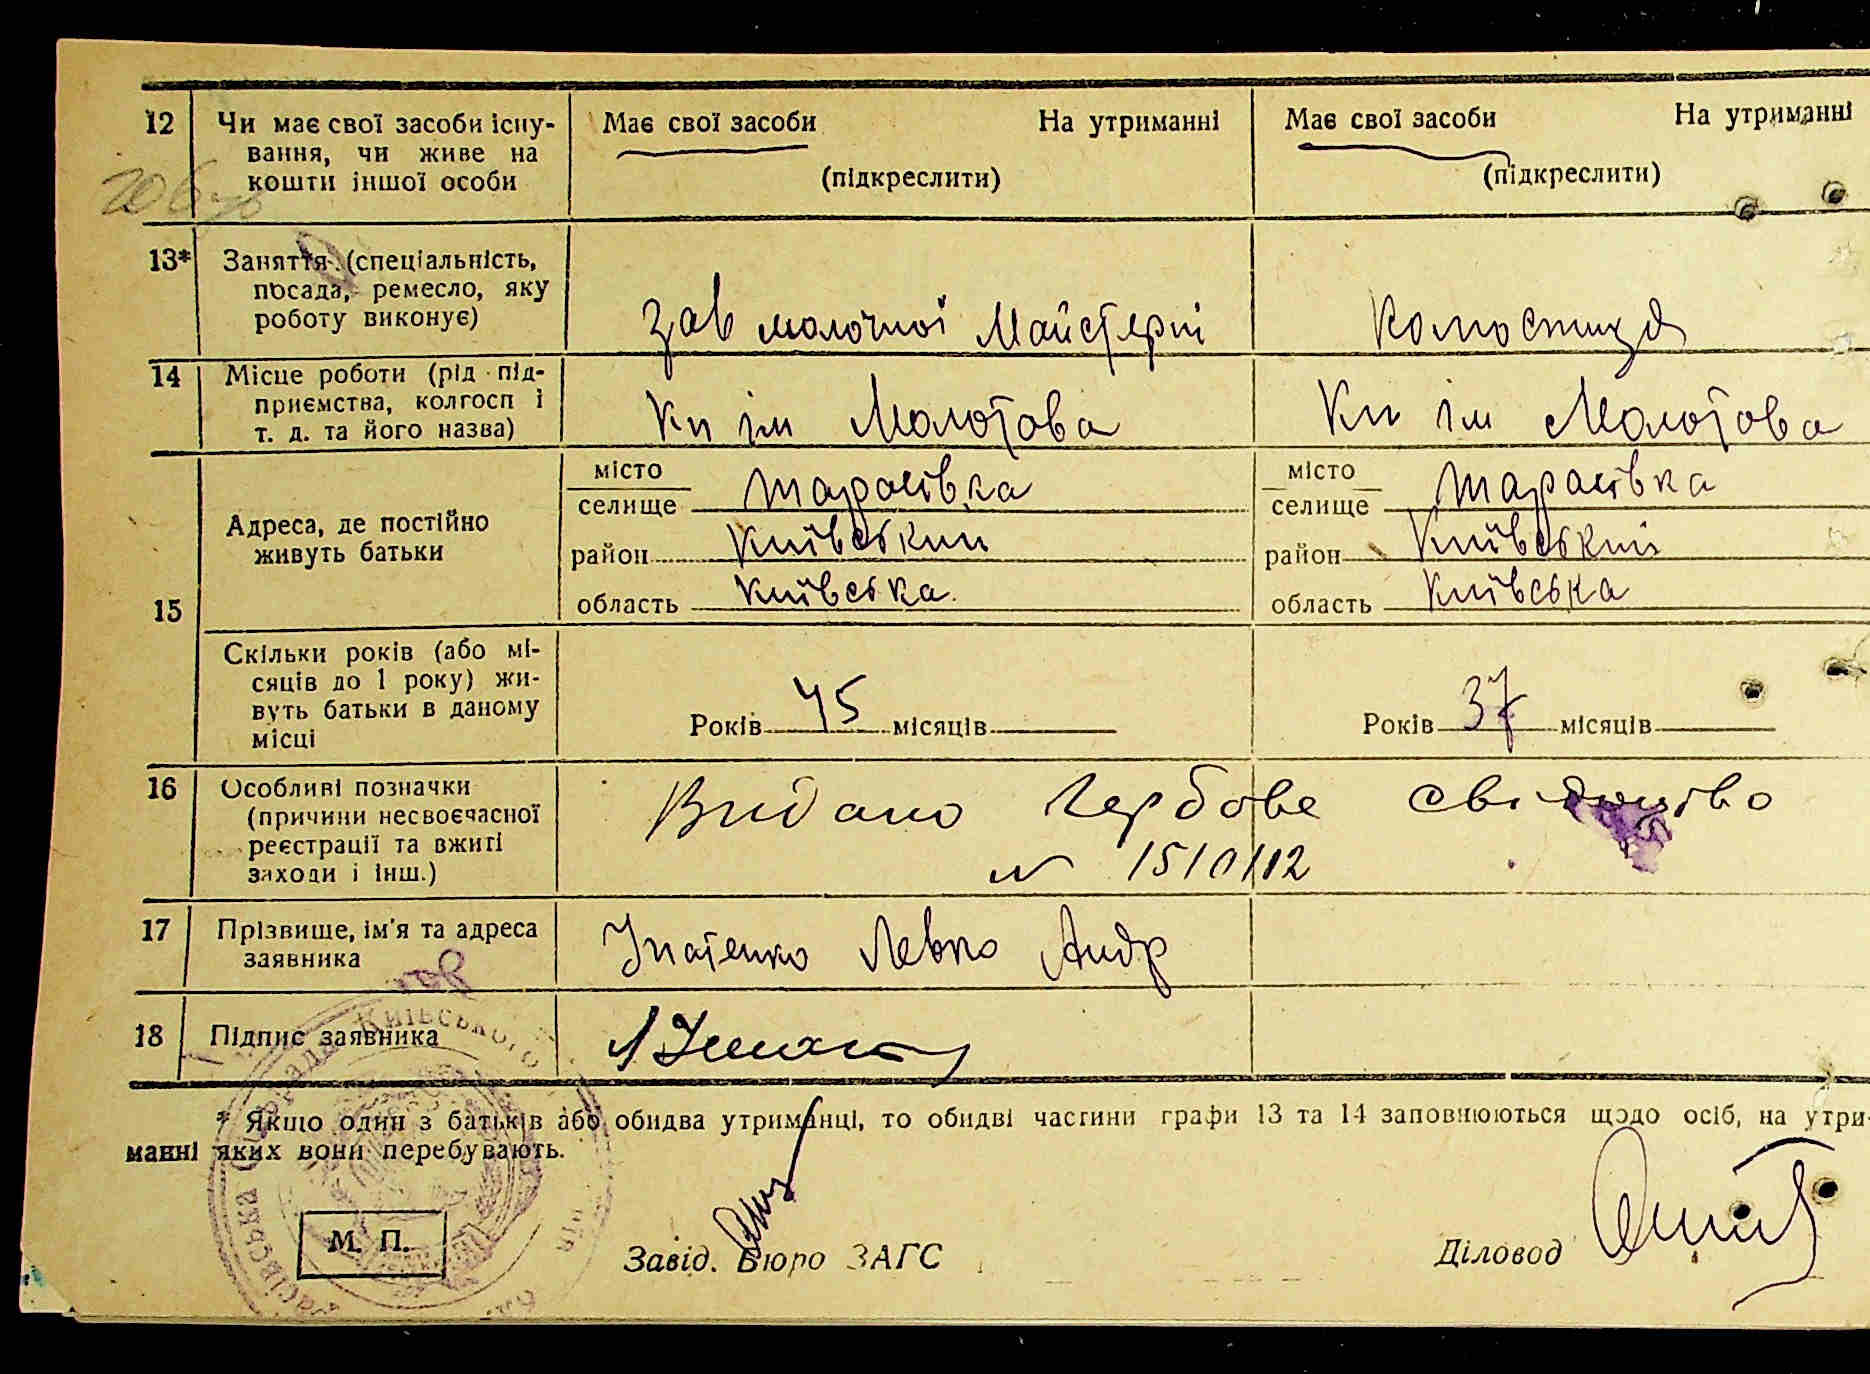 12 Чи має свої засоби існу-
вання, чи живе на
кошти іншої особи
Має свої засоби На утриманні
(підкреслити)
Має свої засоби На утриманні
(підкреслити)
13* Заняття (спеціальність,
посада, ремесло, яку
роботу виконує)
Зав молочної Майстерні
14 Місце роботи (рід під-
приємства, колгосп і
т. д. та його назва)
Кп ім Молотова
Кп ім Молотова
15
Адреса, де постійно
живуть батьки
місто
селище Тарасівка
район Київський
область Київська
місто
селище Тарасівка
район Київський
область Київська
Скільки років (або мі-
сяців до 1 року) жи-
вуть батьки в даному
місці
Років 45 місяців
Років 37 місяців
16 Особливі позначки
(причини несвоєчасної
реєстрації та вжиті
заходи і інш.)
Видано Гербове свідоцтво
N
17 Прізвище, ім'я та адреса
заявника
Ігнатенко Левко Андр
18 Підпис заявника
* Якщо один з батьків або обидва утриманці, то обидві частини графи 13 та 14 заповнюються щодо осіб, на утри-
манні яких вони перебувають.
М. П.
Завід. Бюро ЗАГС
Діловод